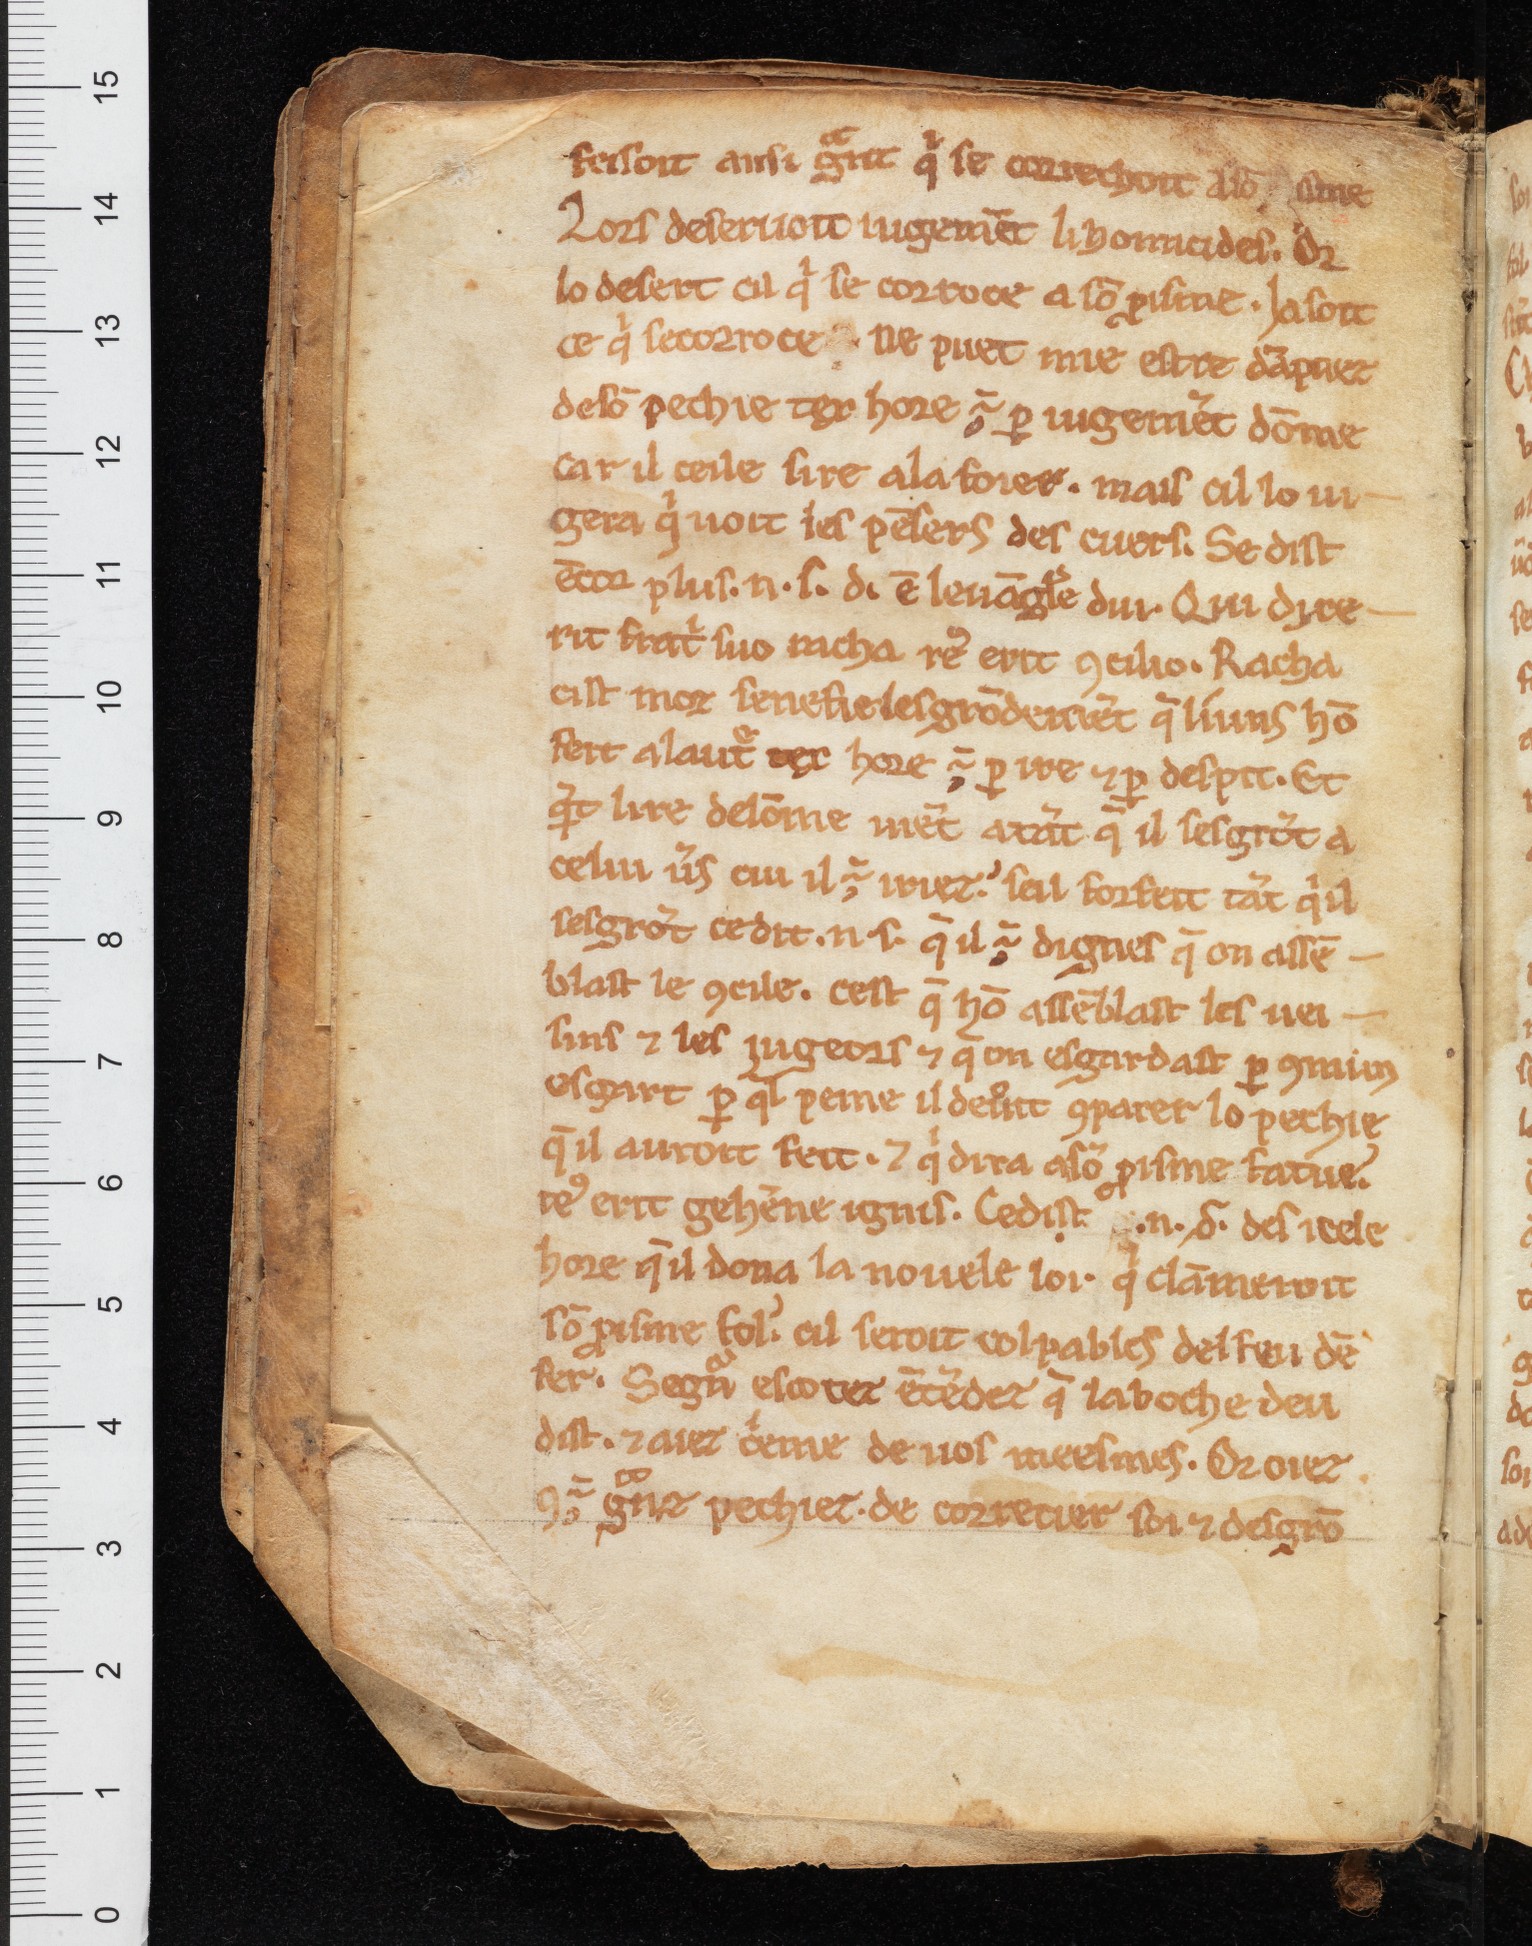 feisoit ausi gͣnt qͥ se correchoit a sō sme
Lors deseruoit iugemēt li homicides. Or
lo desert cil qͥ se corroce a sō pisme. Ja soit
ce qͥ se corroce . ne puet mie estre dāpnez
de sō pechie tex hore ē ꝑ iugemēt dōme
car il ceile sire a la foiee. mais cil lo iu-
gera qͥ uoit les pēsers des cuers. Se dist
ēcor plus. n. s. d. ē leuāgͥle dui. Qui dixe-
rit fratͥ suo racha reꝰ erit ꝯcilio. Racha
cist moz senefie lesgrōdemēt q̄ li uns hō
feit a lautͤ tex hore ē ꝑ ire ⁊ ꝑ despit. Et
qͣt lire delōme mēt a tāt q̄ il sesgrōt a
celui ūs cui il ē iriez. seil forfeit tāt qͥl
sesgrōt ce dit. n. s. q̄ il ē dignes q̄ on assē-
blast le ꝯcile. cest q̄ hō assēblast les uei-
sins ⁊ les iugeors ⁊ q̄ on esgardast ꝑ ꝯmun
esgart ꝑ q̄l peine il deūt ꝯparer lo pechie
q̄ il auroit feit. ⁊ qͥ dira a sō pisme fatue.
reꝰ erit gehēne ignis. Ce dist .n. s. des icele
hore q̄ il dona la nouele loi. qͥ clāmeroit
sō pisme fol. cil seroit colpables del feu dē
fer. Segnͬ escotez ētēdez q̄ la boche deu
dist. ⁊ aiez cͥeme de uos meesmes. Or oiez
ꝯ ē gͣnz pechiez. de correcier soi ⁊ desgrō
0
1
2
3
4
5
6
7
8
9
10
11
12
13
14
15